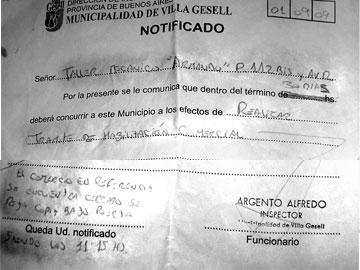 DIRECCION DE
PROVINCIA DE BUENOS AIRES
MUNICIPALIDAD DE VILLA GESELL
01 09 09
NOTIFICADO
Señor TALLER MECANICO "ARMANDO" P. 112 BIS Y AV.
Por la presente se le comunica que dentro del término de 30 DIAS hs.
deberá concurrir a este Municipio a los efectos de REALIZAR
TRAMITE DE HABILITACIÓN COMERCIAL
EL COMERCIO EN REFERENCIA
SE ENCUENTRA CERRADO SE
DEJA COPIA BAJO PUERTA
ARGENTO ALFREDO
INSPECTOR
Municipalidad de Villa Gesell
Queda Ud. notificado
Funcionario
SIENDO LAS 11:15 HS.